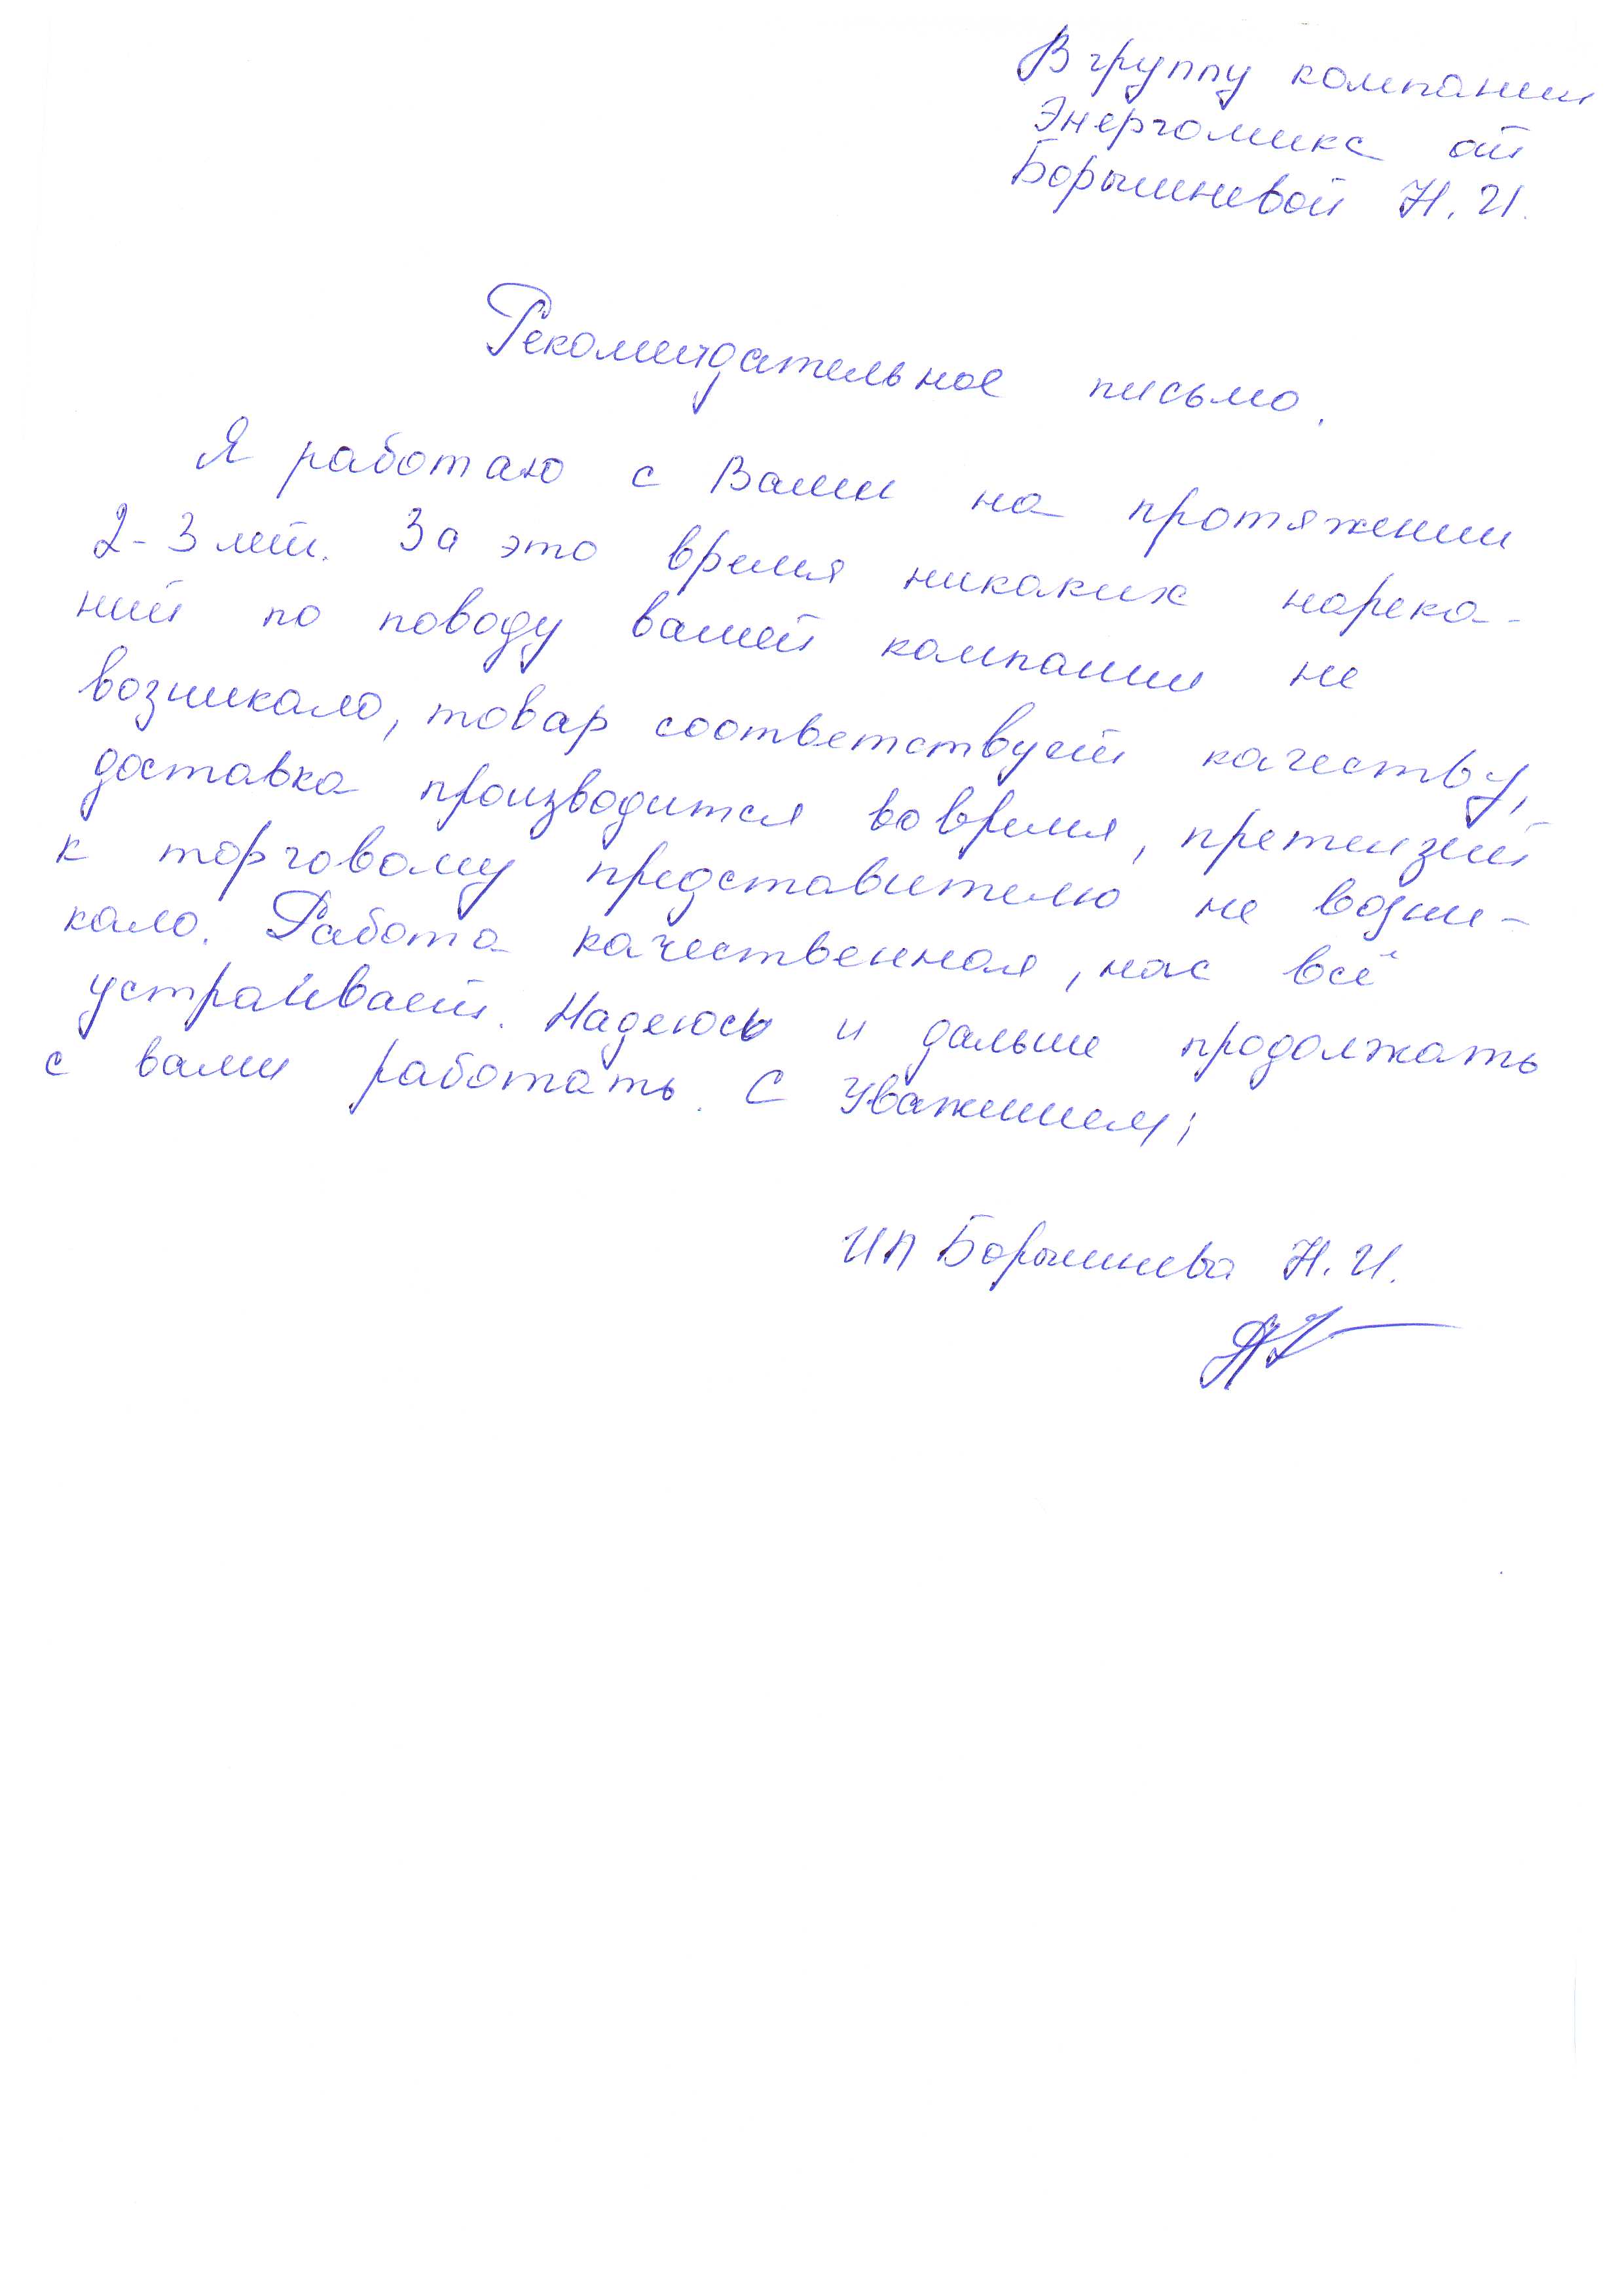 В группу компании
Энергомикс от
Борышневой Н.И.
Рекомендательное письмо.
Я работаю с Вами на протяжении
2-3 лет. За это время никаких нарека-
ний по поводу вашей компании не
возникало, товар соответствует качеству,
доставка производится вовремя, претензий
к торговому представителю не возни-
кало. Работа качественная, нас всё
устраивает. Надеюсь и дальше продолжать
с вами работать. С Уважением;
ИП Борышнева Н.И.